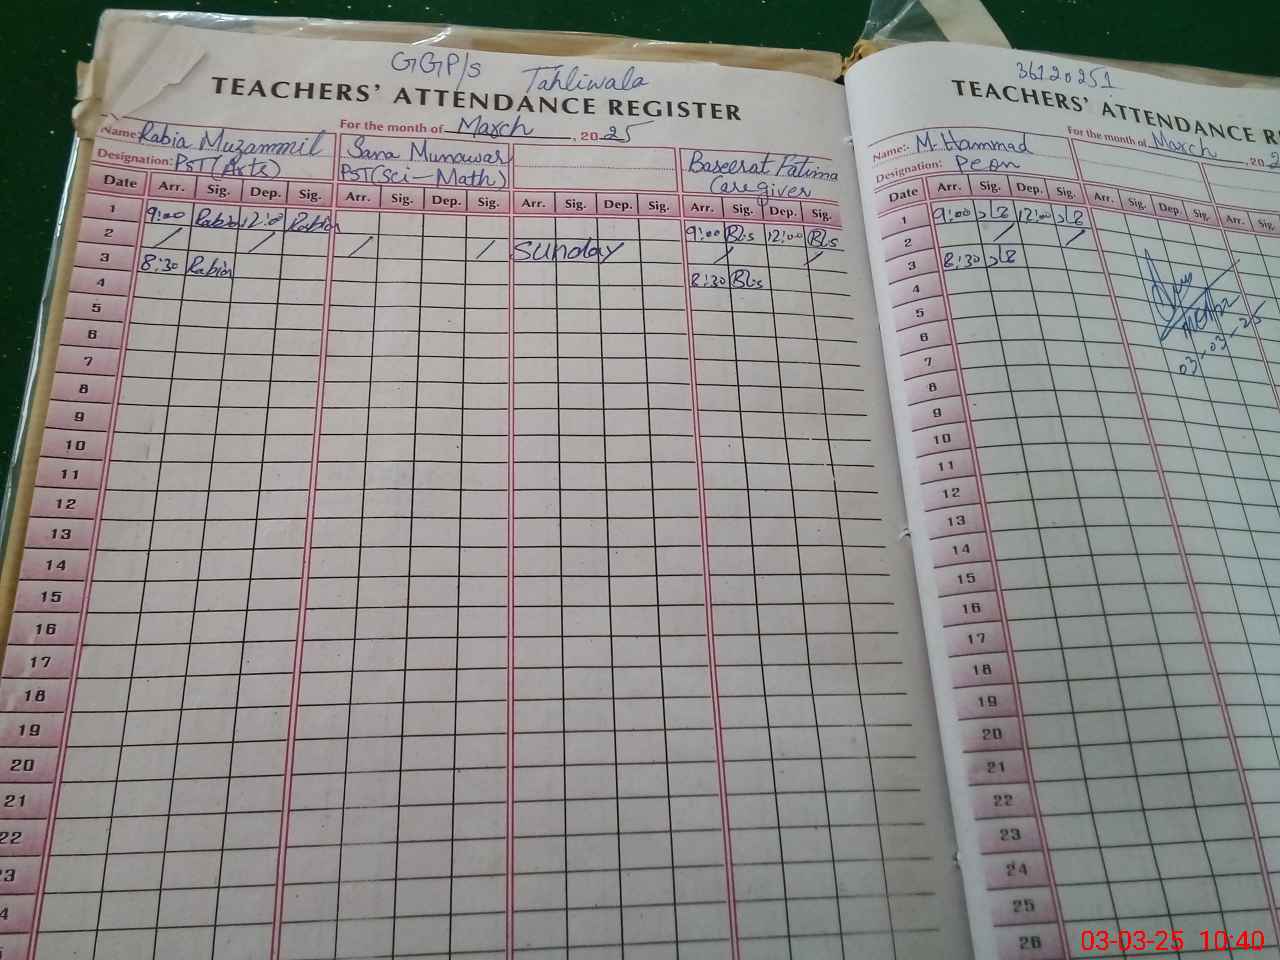 GGP/S Tahliwala
TEACHERS' ATTENDANCE REGISTER
For the month of March, 2025
Name: Rabia Muzammil
Designation: PST (Arts)
Sana Munawar
PST (Sci-Math)
Baseerat Fatima
Caregiver
Date Arr. Sig. Dep. Sig. Arr. Sig. Dep. Sig. Arr. Sig. Dep. Sig. Arr. Sig. Dep. Sig.
1 9:00 Rabia 12:00 Rabia 9:00 12:00
2 / / / / Sunday / /
3 8:30 Rabia 8:30
4
5
6
7
8
9
10
11
12
13
14
15
16
17
18
19
20
21
22
23
4
36120251
TEACHERS' ATTENDANCE R
For the month of March, 202
Name:- M. Hammad
Designation: Peon
Date Arr. Sig. Dep. Sig. Arr. Sig. Dep. Sig. Arr. Sig.
1 9:00 12:00
2 / /
3 8:30
4
5
6
7
8
9
10
11
12
13
14
15
16
17
18
19
20
21
22
23
24
25
26
03-03-25
03-03-25 10:40